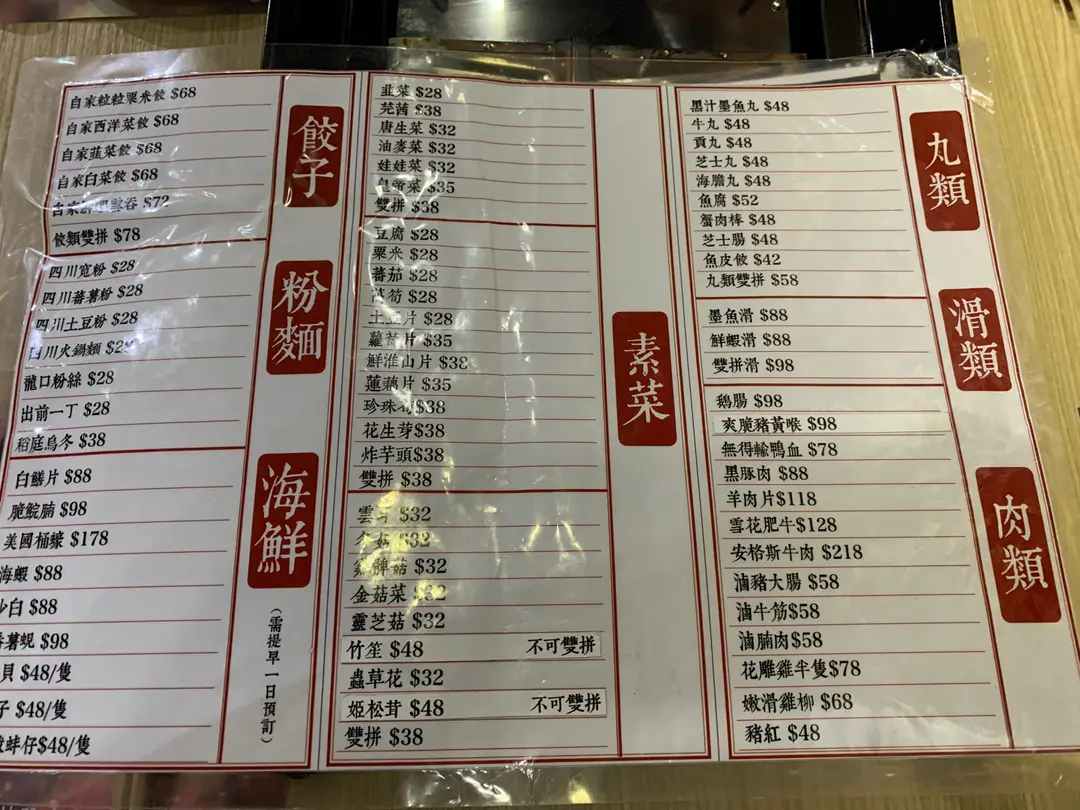 餃子
自家粒粒粟米餃 $68
自家西洋菜餃 $68
自家韮菜餃 $68
自家白菜餃 $68
自家鮮蝦雲吞 $72
餃類雙拼 $78
粉麵
四川寬粉 $28
四川蕃薯粉 $28
四川土豆粉 $28
四川火鍋麵 $28
龍口粉絲 $28
出前一丁 $28
稻庭烏冬 $38
海鮮
(需提早一日預訂)
白鱔片 $88
脆鯇腩 $98
美國桶蠔 $178
海蝦 $88
沙白 $88
番薯蜆 $98
貝 $48/隻
子 $48/隻
蚌仔$48/隻
素菜
韮菜 $28
芫茜 $38
唐生菜 $32
油麥菜 $32
娃娃菜 $32
皇帝菜 $35
雙拼 $38
豆腐 $28
粟米 $28
蕃茄 $28
萵筍 $28
土豆片 $28
蘿蔔片 $35
鮮淮山片 $38
蓮藕片 $35
珍珠筍$38
花生芽$38
炸芋頭$38
雙拼 $38
雲耳 $32
$32
菇 $32
金菇菜 $32
靈芝菇 $32
竹笙 $48 不可雙拼
蟲草花 $32
姬松茸 $48 不可雙拼
雙拼 $38
丸類
黑汁墨魚丸 $48
牛丸 $48
貢丸 $48
芝士丸 $48
海膽丸 $48
魚腐 $52
蟹肉棒 $48
芝士腸 $48
魚皮餃 $42
丸類雙拼 $58
滑類
墨魚滑 $88
鮮蝦滑 $88
雙拼滑 $98
肉類
鵝腸 $98
爽脆豬黃喉 $98
無得輸鴨血 $78
黑豚肉 $88
羊肉片$118
雪花肥牛$128
安格斯牛肉 $218
滷豬大腸 $58
滷牛筋$58
滷腩肉$58
花雕雞半隻$78
嫩滑雞柳 $68
豬紅 $48